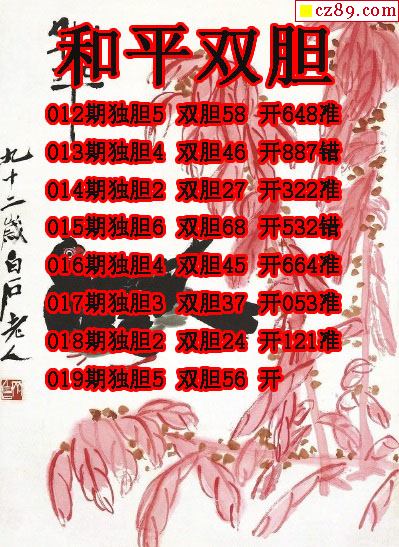 cz89.com
和平
和平双胆
012期独胆5 双胆58 开648准
013期独胆4 双胆46 开887错
014期独胆2 双胆27 开322准
015期独胆6 双胆68 开532错
016期独胆4 双胆45 开664准
017期独胆3 双胆37 开053准
018期独胆2 双胆24 开121准
019期独胆5 双胆56 开
九十二岁白石老人